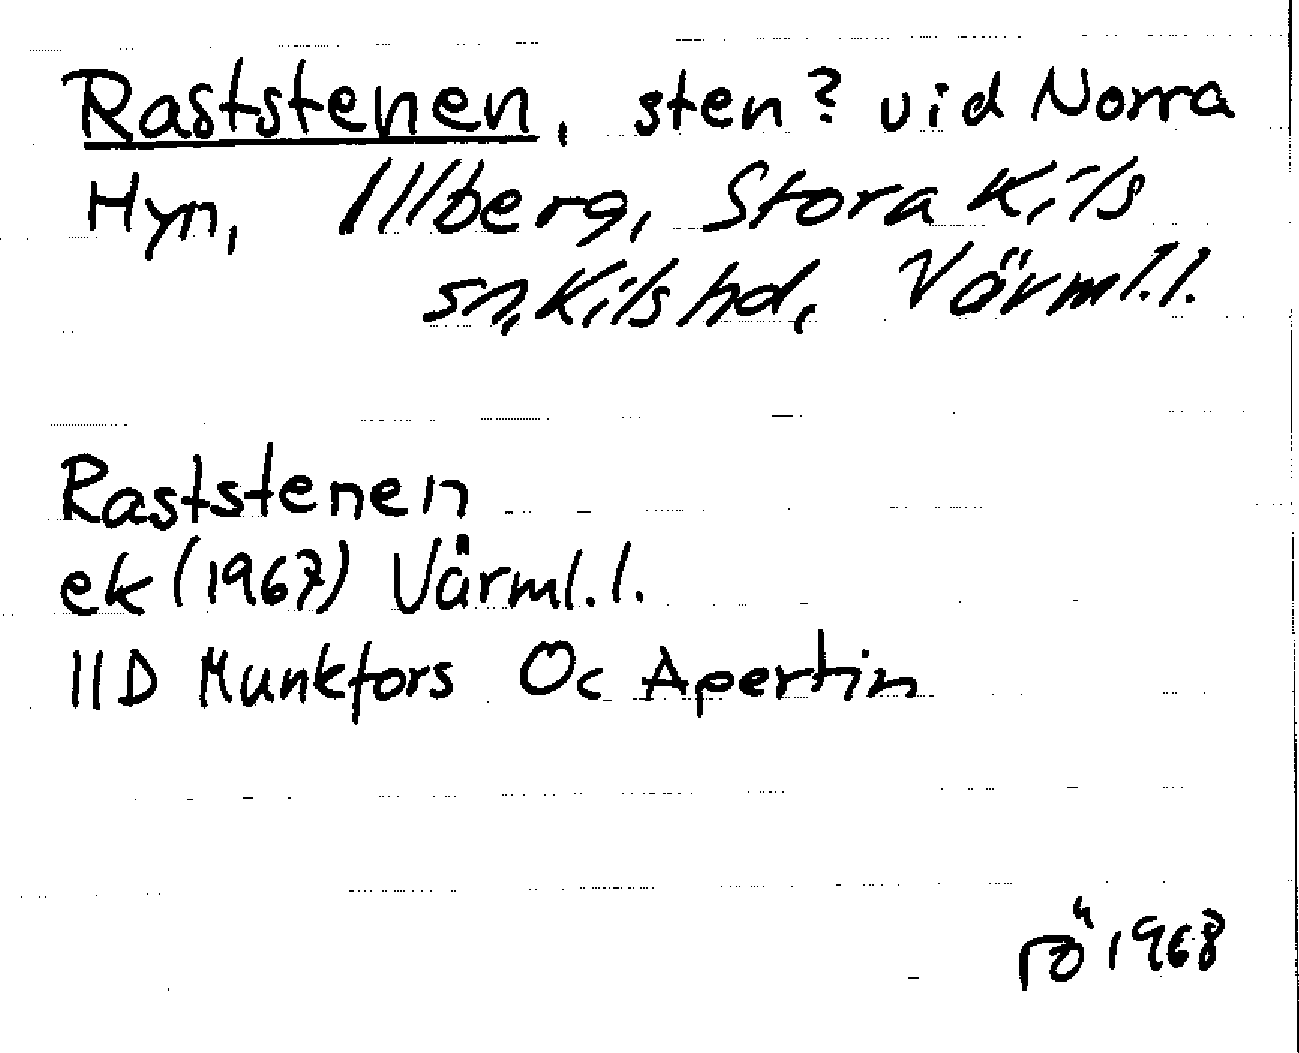 Raststenen, sten? vid Norra
Hyn, Illberg, Stora Kils
sn, Kils hd, Värml.l.
Raststenen
ek (1967) Värml.l.
11D Munkfors Oc Apertin
rö 1968